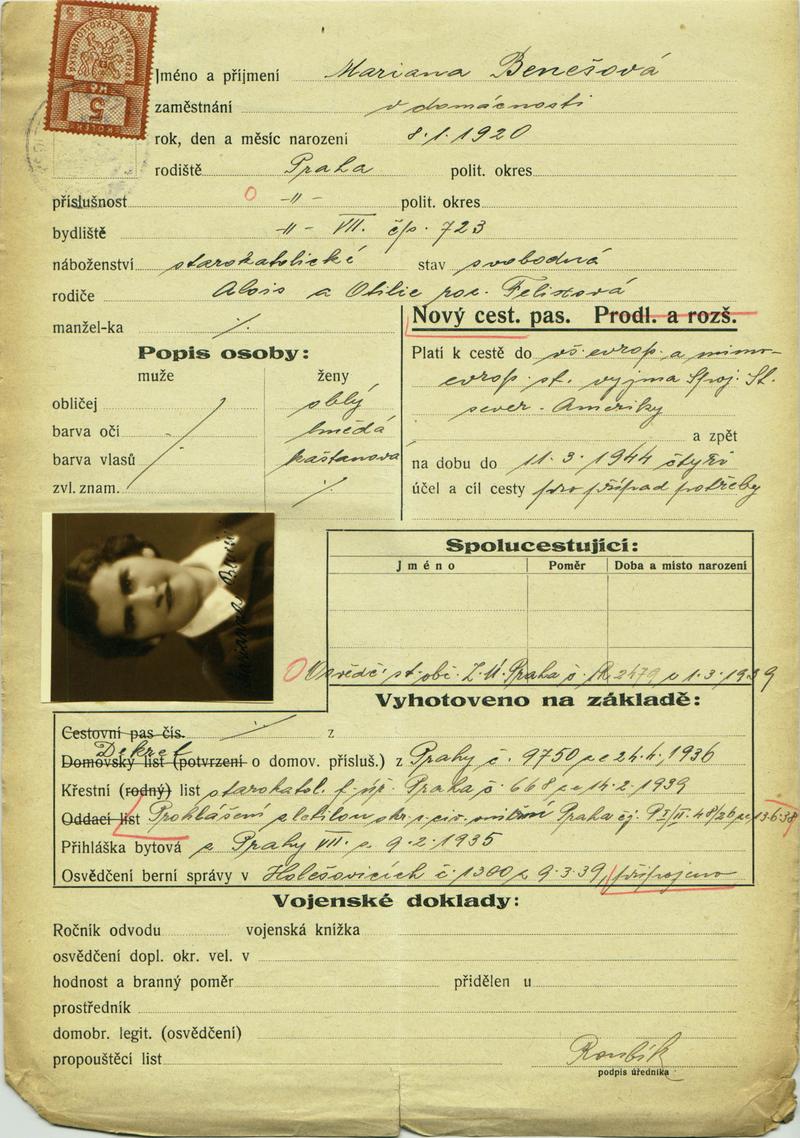 5
KČ
KOLEK
Jméno a příjmení Mariana Benešová
zaměstnání v domácnosti
rok, den a měsíc narození 8.1.1920
rodiště Praha polit. okres
příslušnost -"- polit. okres
bydliště -"- VII. čp. 723
náboženství starokatolické stav svobodná
rodiče Alois a Otilie roz. Felixová
manžel-ka ./.
Nový cest. pas. Prodl. a rozš.
Popis osoby:
muže ženy
obličej oblý
barva očí hnědá
barva vlasů kaštanová
zvl. znam. ./.
Platí k cestě do vš. evrop. a mimo-
evrop. st. vyjma Spoj. St.
sever. Ameriky
a zpět
na dobu do 11.3.1944 čtyři
účel a cíl cesty pro případ potřeby
Spolucestující:
Jméno Poměr Doba a místo narození
Osvědč. st. obč. Z.Ú. Praha č. 2479 z 1.3.1939
Vyhotoveno na základě:
Cestovní pas čís. ./. z
Dekret
Domovský list (potvrzení o domov. přísluš.) z Prahy č. 9750 ze 24.4.1936
Křestní (rodný) list starokatol. f. úř. Praha č. 668 ze 14.2.1939
Oddací list Prohlášení zletilou okr. s. civ. vnitřní Praha čj. 48/26 ze 13.6.38
Přihláška bytová z Prahy VII. z 9.2.1935
Osvědčení berní správy v Holešovicích č. 1300 z 9.3.39, připojeno
Vojenské doklady:
Ročník odvodu vojenská knížka
osvědčení dopl. okr. vel. v
hodnost a branný poměr přidělen u
prostředník
domobr. legit. (osvědčení)
propouštěcí list
Roubík
podpis úředníka